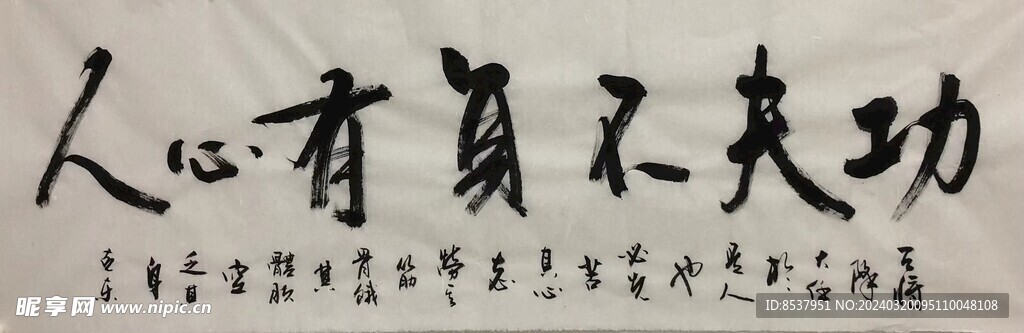 功夫不負有心人
降大任於是人也必先苦其心志勞其筋骨餓其體膚空乏其身
昵享网 www.nipic.cn
ID:8537951 NO:20240320095110048108